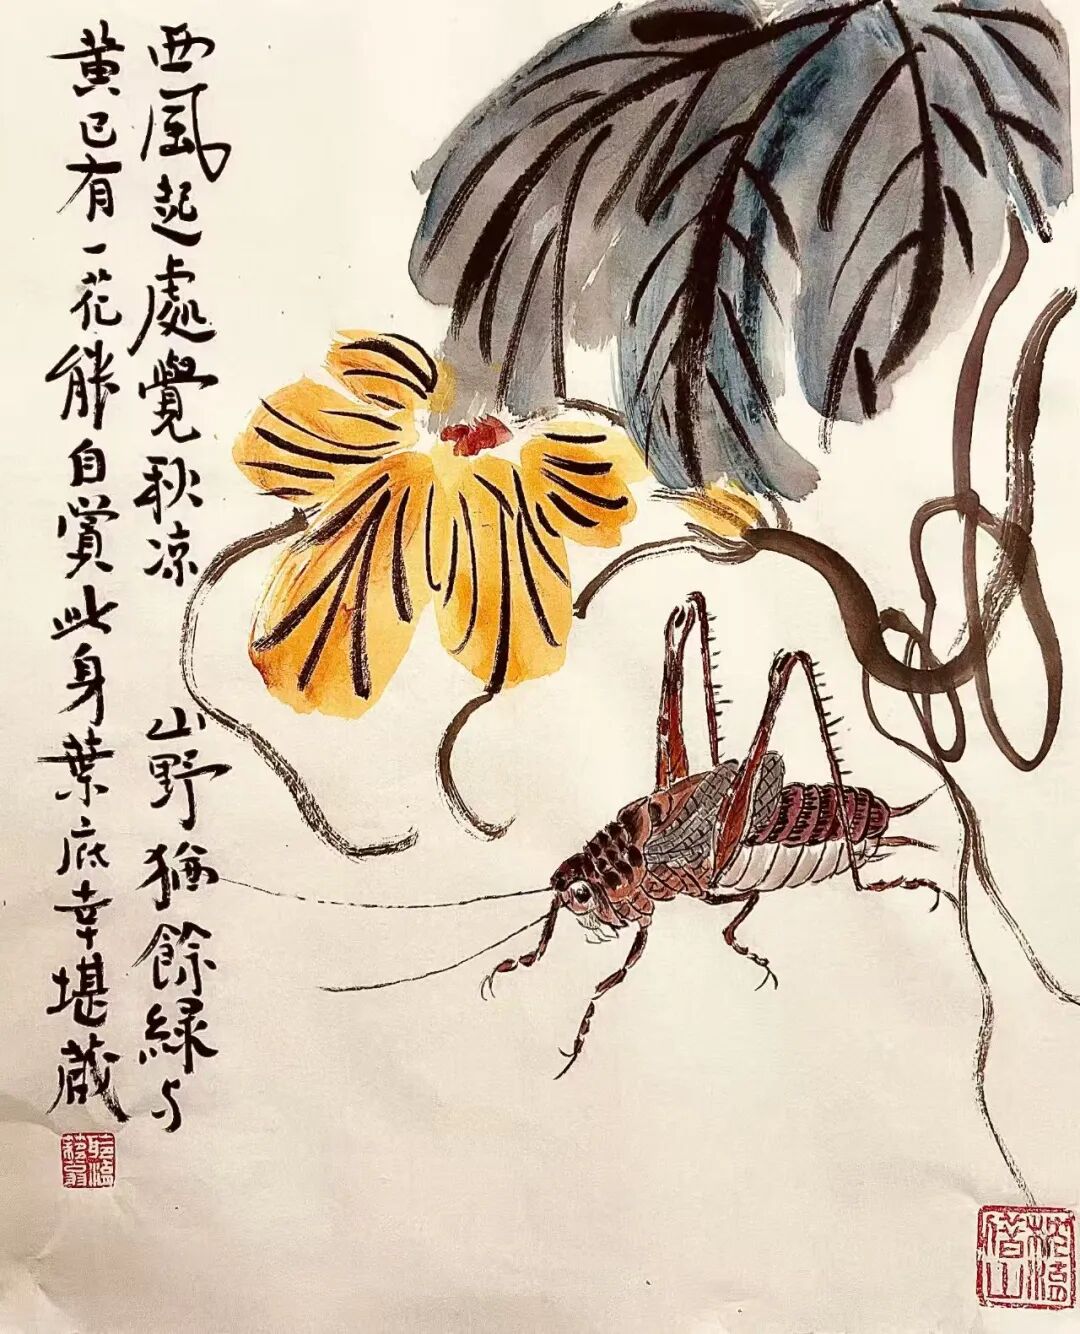 西風起處覺秋凉 山野猶餘緑与
黄已有一花能自賞此身葉底幸堪藏